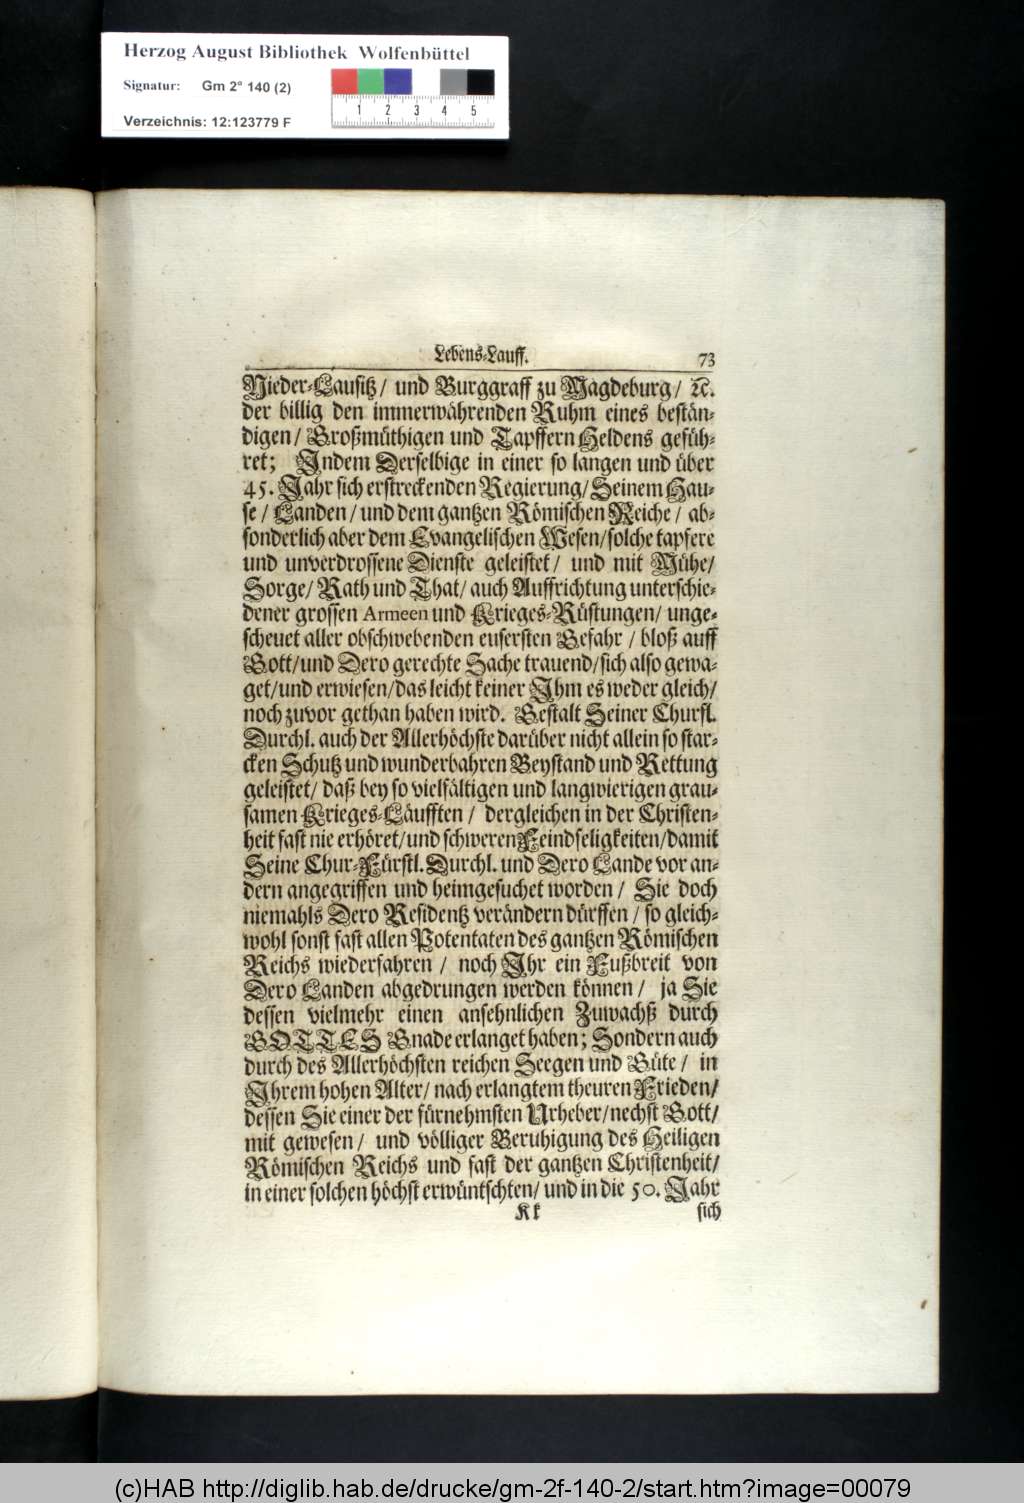 Herzog August Bibliothek Wolfenbüttel
Signatur: Gm 2° 140 (2)
1 2 3 4 5
Verzeichnis: 12:123779 F
Lebens-Lauff. 73
Nieder-Lausitz/ und Burggraff zu Magdeburg/ ꝛc.
der billig den immerwährenden Ruhm eines bestän-
digen/ Großmüthigen und Tapffern Heldens gefüh-
ret; Indem Derselbige in einer so langen und über
45. Jahr sich erstreckenden Regierung/ Seinem Hau-
se/ Landen/ und dem gantzen Römischen Reiche/ ab-
sonderlich aber dem Evangelischen Wesen/ solche tapfere
und unverdrossene Dienste geleistet/ und mit Mühe/
Sorge/ Rath und That/ auch Auffrichtung unterschie-
dener grossen Armeen und Krieges-Rüstungen/ unge-
scheuet aller obschwebenden eusersten Gefahr/ bloß auff
Gott/ und Dero gerechte Sache trauend/ sich also gewa-
get/ und erwiesen/ das leicht keiner Ihm es weder gleich/
noch zuvor gethan haben wird. Gestalt Seiner Churfl.
Durchl. auch der Allerhöchste darüber nicht allein so star-
cken Schutz und wunderbahren Beystand und Rettung
geleistet/ daß bey so vielfältigen und langwierigen grau-
samen Krieges-Läufften/ dergleichen in der Christen-
heit fast nie erhöret/ und schweren Feindseligkeiten/ damit
Seine Chur-Fürstl. Durchl. und Dero Lande vor an-
dern angegriffen und heimgesuchet worden/ Sie doch
niemahls Dero Residentz verändern dürffen/ so gleich-
wohl sonst fast allen Potentaten des gantzen Römischen
Reichs wiederfahren/ noch Ihr ein Fußbreit von
Dero Landen abgedrungen werden können/ ja Sie
dessen vielmehr einen ansehnlichen Zuwachß durch
GOTTES Gnade erlanget haben; Sondern auch
durch des Allerhöchsten reichen Seegen und Güte/ in
Ihrem hohen Alter/ nach erlangtem theuren Frieden/
dessen Sie einer der fürnehmsten Urheber/ nechst Gott/
mit gewesen/ und völliger Beruhigung des Heiligen
Römischen Reichs und fast der gantzen Christenheit/
in einer solchen höchst erwüntschten/ und in die 50. Jahr
Kk sich
(c)HAB http://diglib.hab.de/drucke/gm-2f-140-2/start.htm?image=00079